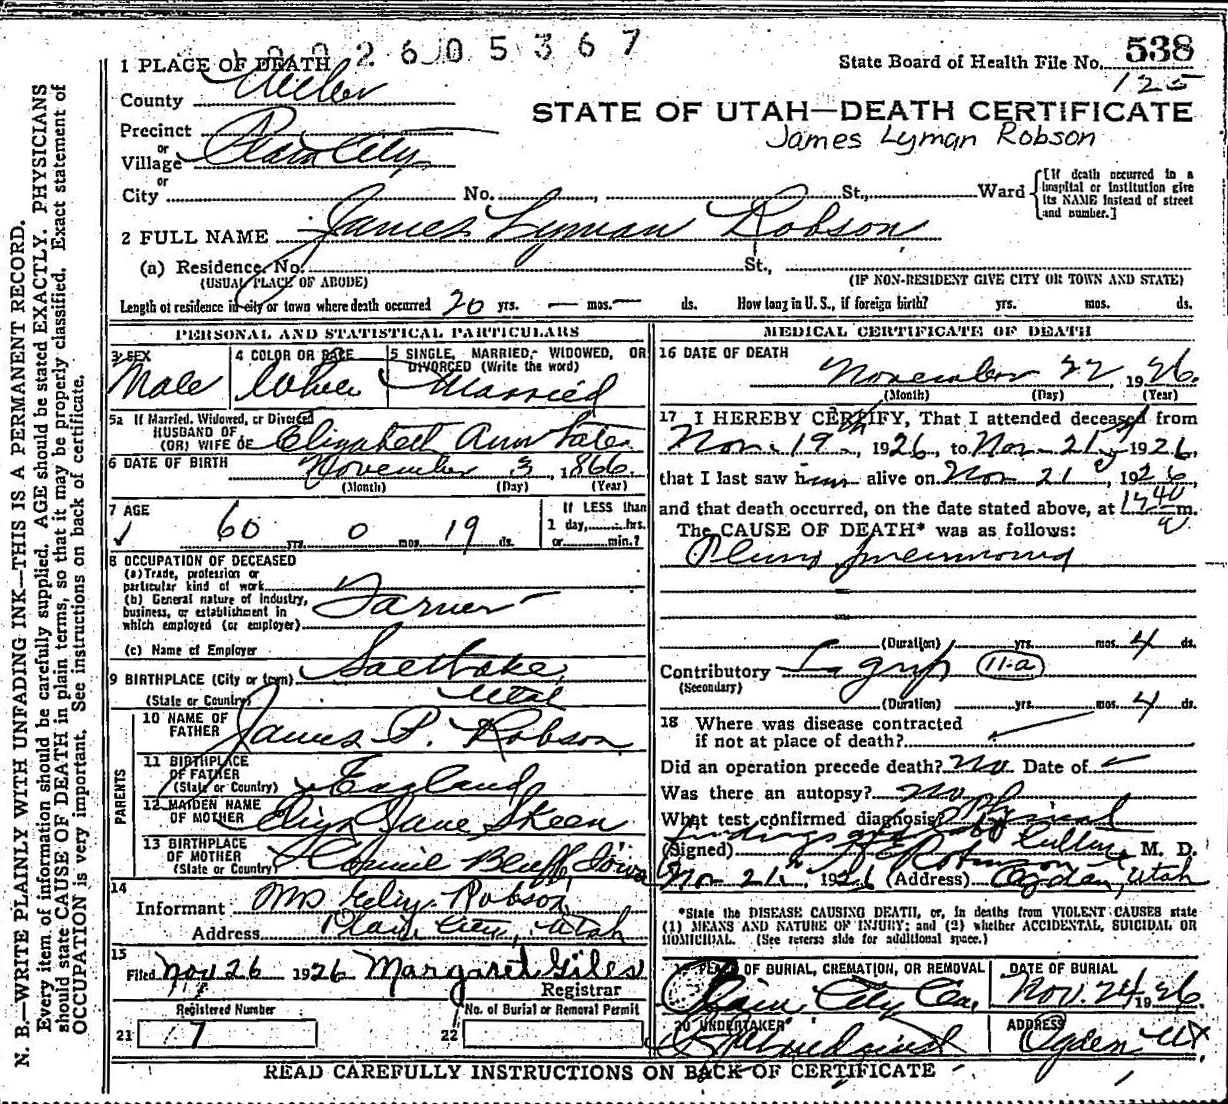 1 PLACE OF DEATH 2605367
State Board of Health File No. 538
125
County Weber
STATE OF UTAH—DEATH CERTIFICATE
James Lyman Robson
Precinct
or
Village Plain City
or
City No. , St., Ward
[If death occurred in a
hospital or institution give
its NAME instead of street
and number.]
2 FULL NAME James Lyman Robson
(a) Residence, No. St.,
(USUAL PLACE OF ABODE) (IF NON-RESIDENT GIVE CITY OR TOWN AND STATE)
Length of residence in city or town where death occurred 20 yrs. — mos. — ds. How long in U. S., if foreign birth? yrs. mos. ds.
PERSONAL AND STATISTICAL PARTICULARS
3 SEX
Male
4 COLOR OR RACE
White
5 SINGLE, MARRIED, WIDOWED, OR
DIVORCED (Write the word)
Married
5a If Married, Widowed, or Divorced
HUSBAND OF
(OR) WIFE OF Elizabeth Ann
6 DATE OF BIRTH November 3, 1866
(Month) (Day) (Year)
7 AGE
60 yrs. 0 mos. 19 ds.
If LESS than
1 day, hrs.
or min.?
8 OCCUPATION OF DECEASED
(a) Trade, profession or
particular kind of work
(b) General nature of industry,
business, or establishment in
which employed (or employer) Farmer
(c) Name of Employer
9 BIRTHPLACE (City or town) Salt Lake,
(State or Country) Utah
PARENTS
10 NAME OF
FATHER James P. Robson
11 BIRTHPLACE
OF FATHER
(State or Country) England
12 MAIDEN NAME
OF MOTHER Eliza Jane Skeen
13 BIRTHPLACE
OF MOTHER
(State or Country) Bluff, Iowa
14
Informant Mrs Robson
Address Plain City, Utah
15
Filed Nov 26 1926 Margaret Giles
Registrar
Registered Number
21 17
No. of Burial or Removal Permit
22
MEDICAL CERTIFICATE OF DEATH
16 DATE OF DEATH
November 22, 1926.
(Month) (Day) (Year)
17 I HEREBY CERTIFY, That I attended deceased from
Nov. 19th, 1926, to Nov. 21, 1926,
that I last saw him alive on Nov 21, 1926,
and that death occurred, on the date stated above, at m.
The CAUSE OF DEATH* was as follows:
Pneumonia
(Duration) yrs. mos. 4 ds.
Contributory La grip (11-a)
(Secondary)
(Duration) yrs. mos. 4 ds.
18 Where was disease contracted
if not at place of death?
Did an operation precede death? No Date of
Was there an autopsy? No
What test confirmed diagnosis? Physical
findings
(Signed) Robinson M. D.
Nov 21, 1926 (Address) Ogden, Utah
*State the DISEASE CAUSING DEATH, or, in deaths from VIOLENT CAUSES state
(1) MEANS AND NATURE OF INJURY; and (2) whether ACCIDENTAL, SUICIDAL OR
HOMICIDAL. (See reverse side for additional space.)
19 PLACE OF BURIAL, CREMATION, OR REMOVAL
Plain City Cem.
DATE OF BURIAL
Nov. 24 1926
20 UNDERTAKER
ADDRESS
Ogden, Ut
READ CAREFULLY INSTRUCTIONS ON BACK OF CERTIFICATE
N. B.—WRITE PLAINLY WITH UNFADING INK—THIS IS A PERMANENT RECORD.
Every item of information should be carefully supplied. AGE should be stated EXACTLY. PHYSICIANS
should state CAUSE OF DEATH in plain terms, so that it may be properly classified. Exact statement of
OCCUPATION is very important. See instructions on back of certificate.